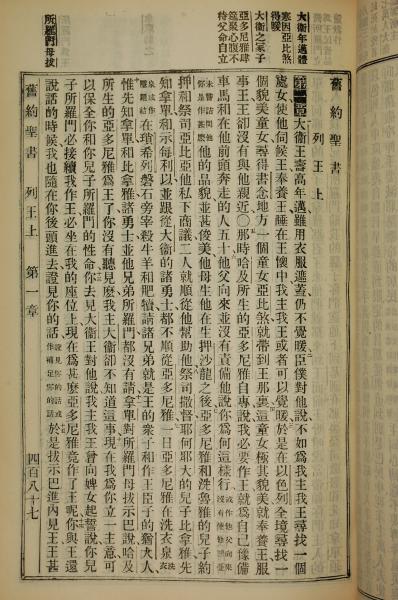 大衛年邁體
寒因亞比煞
得暖
大衛之冢子
亞多尼雅肆
筵聚心腹不
待父命自立
所羅門母拔
舊約聖書
列王上
第一章大衛王壽高年邁雖用衣服遮蓋仍不覺暖臣僕對他說不如爲我主我王尋找一個
處女使他伺候王奉養王睡在王懷中我主我王或者可以覺暖於是在以色列全境尋找一
個貌美童女尋得書念地方一個童女亞比煞就帶到王那裏這童女極其貌美就奉養王服
事王王卻沒有與他親近○那時哈及所生的亞多尼雅自尊說我必要作王就爲自己豫備
車馬和在他前頭奔走的人五十他父向來並沒有責備他說你爲何這樣行或作他父向來
他的品貌並甚俊美他母生他在生押沙龍之後亞多尼雅和洗魯雅的兒子約
押和祭司亞比亞他私下商議二人就順從他幫助他祭司撒督耶何耶大的兒子比拿雅先
知拿單和示每利以並跟從大衛的諸勇士都不順從亞多尼雅一日亞多尼雅在洗衣泉洗衣
泉或作在瑣希列磐石旁宰殺牛羊和肥犢請諸兄弟就是王的衆子和作王臣子的猶大人
惟先知拿單和比拿雅諸勇士並他兄弟所羅門都沒有請拿單對所羅門母拔示巴說哈及
所生的亞多尼雅爲王了你沒有聽見麽我主大衛卻不知道這事現在我爲你立一主意可
以保全你和你兒子所羅門的性命你去見大衛王對他說我主我王曾向婢女起誓說你兒
子所羅門必接續我作王必坐在我的座位上現在爲甚麽亞多尼雅竟作了王呢你與王還
說話的時候我也隨在你後頭進去證見你的話證見你的話或作補足你的話於是拔示巴進內見王王甚
舊約聖書 列王上 第一章 四百八十七